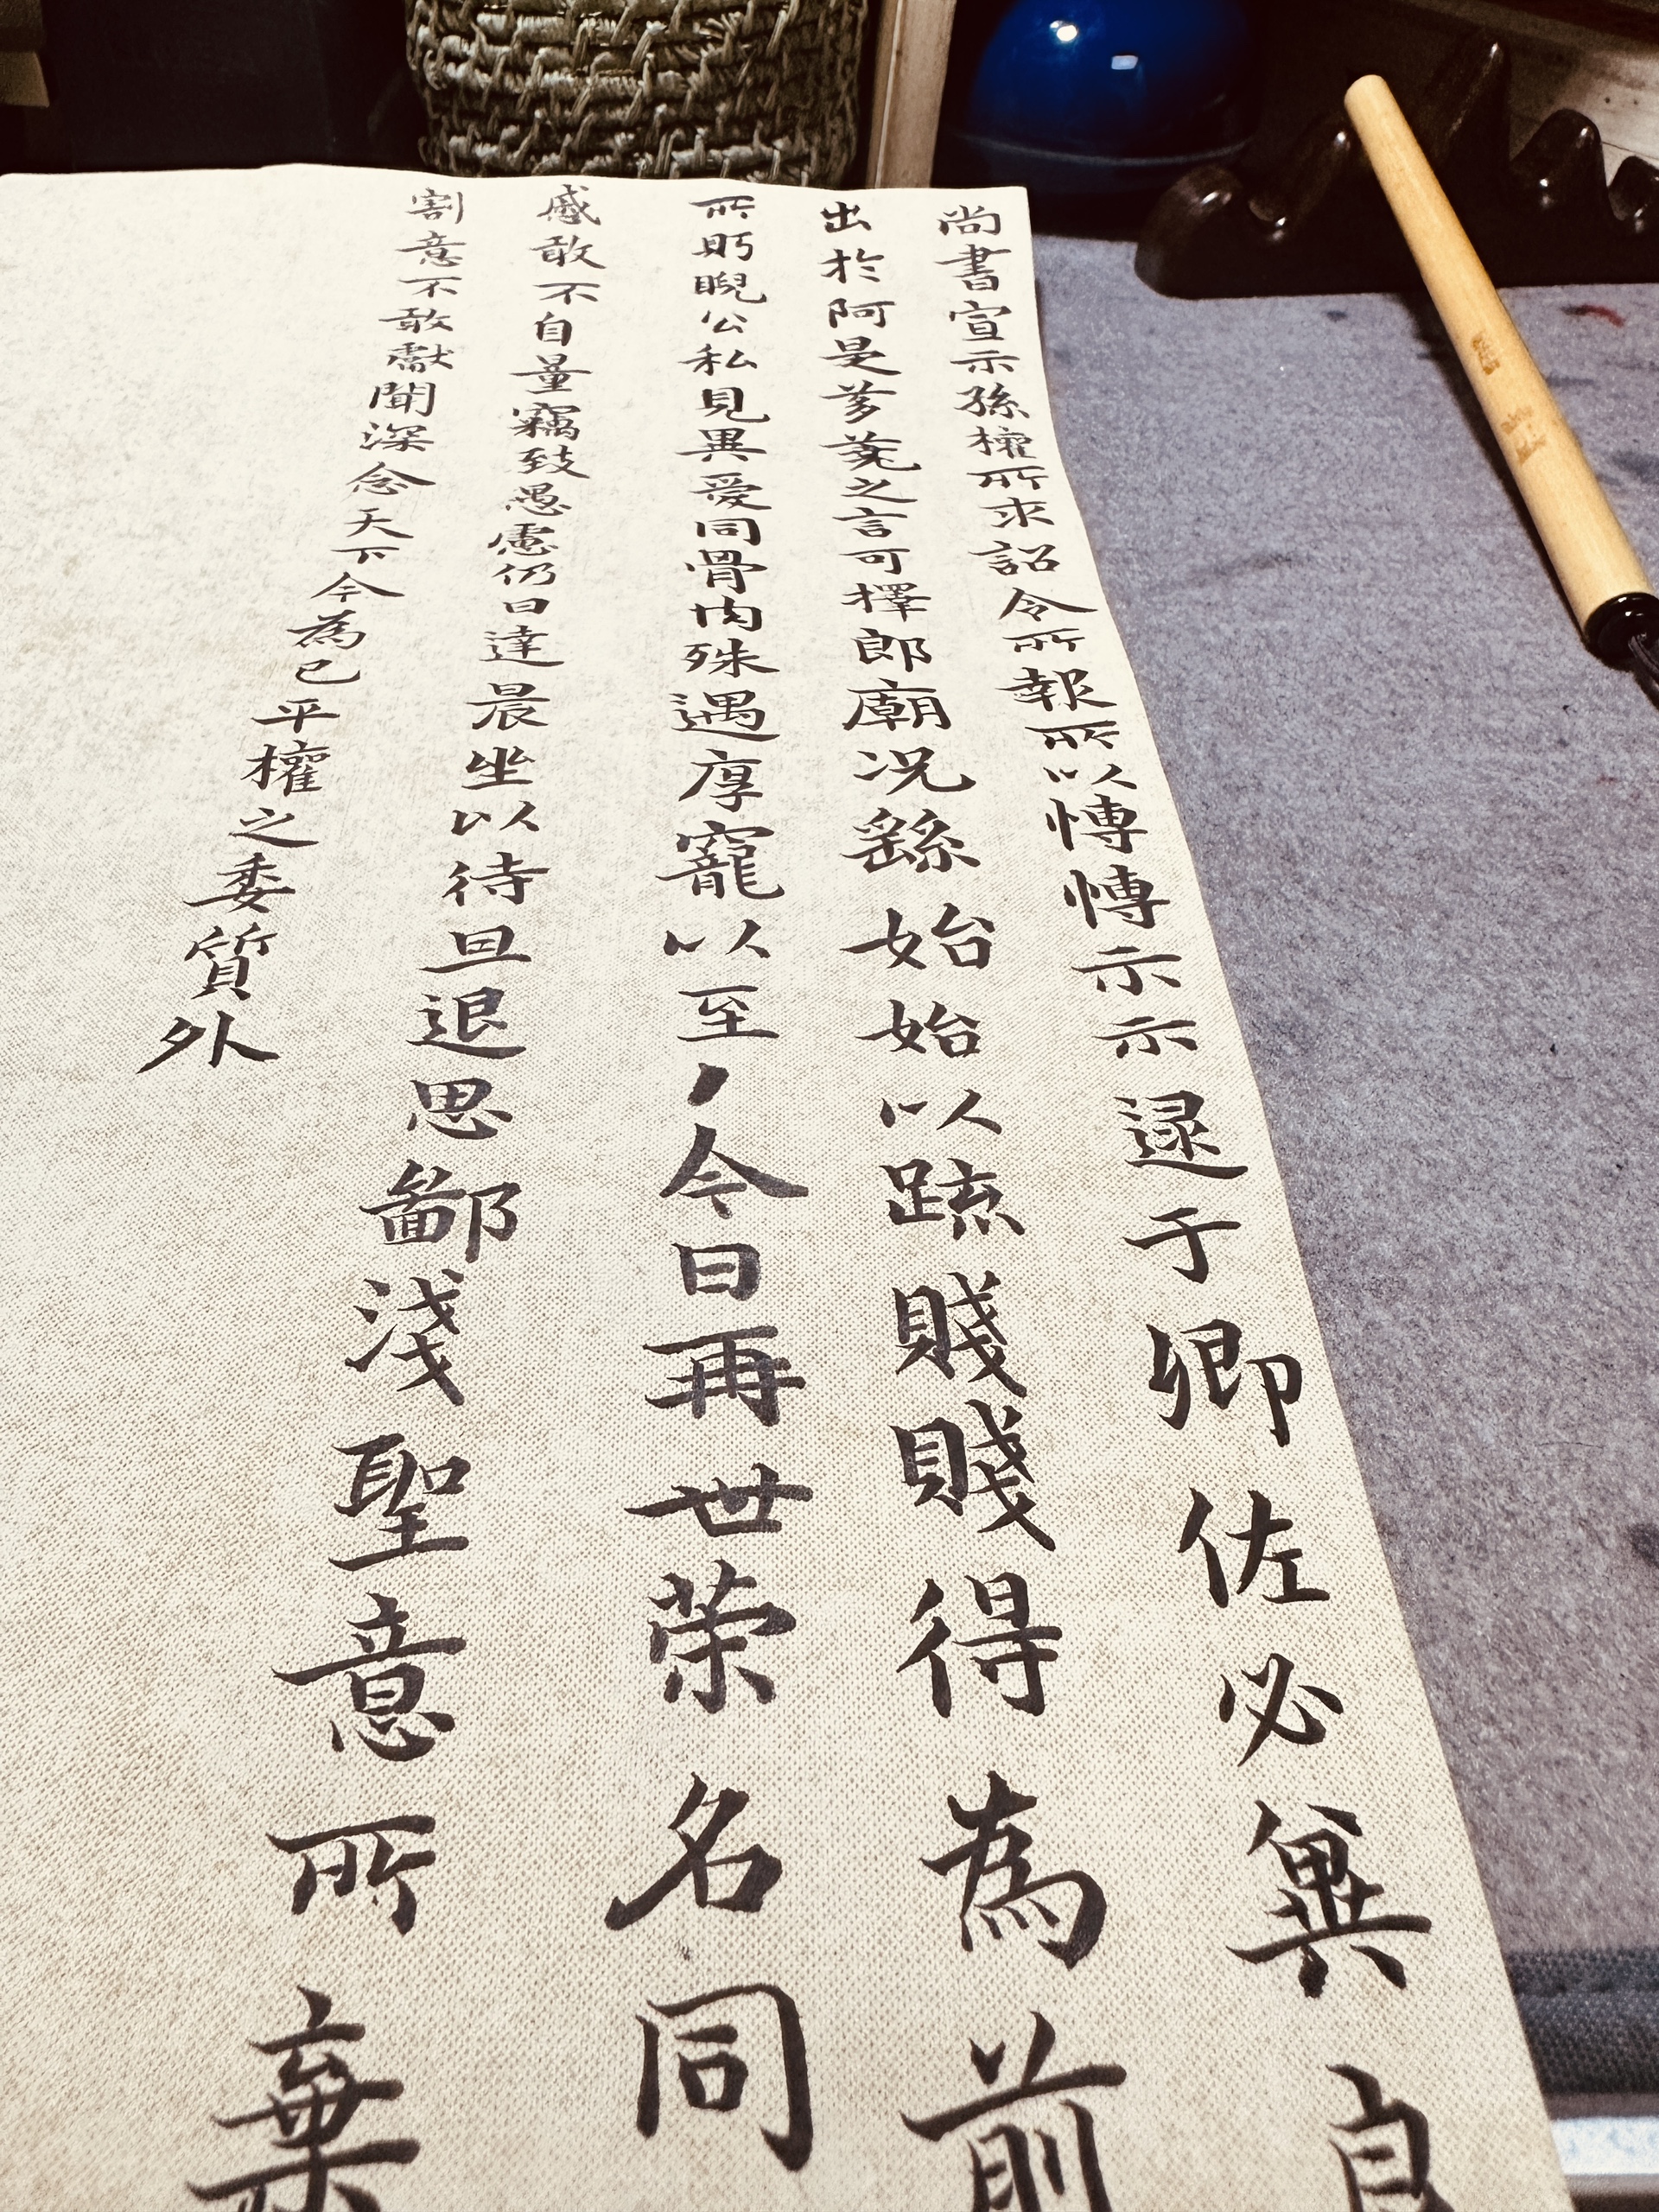 尚書宣示孫權所求詔令所報所以愽愽示示逮于卿佐必冀良
出於阿是芻蕘之言可擇郎廟况繇始始以疏賤賤得為前
所盱睨公私見異愛同骨肉殊遇厚寵以至今日再世榮名同
慼敢不自量竊致愚慮仍日達晨坐以待旦退思鄙淺聖意所棄
割意不敢獻聞深念天下今為已平權之委質外